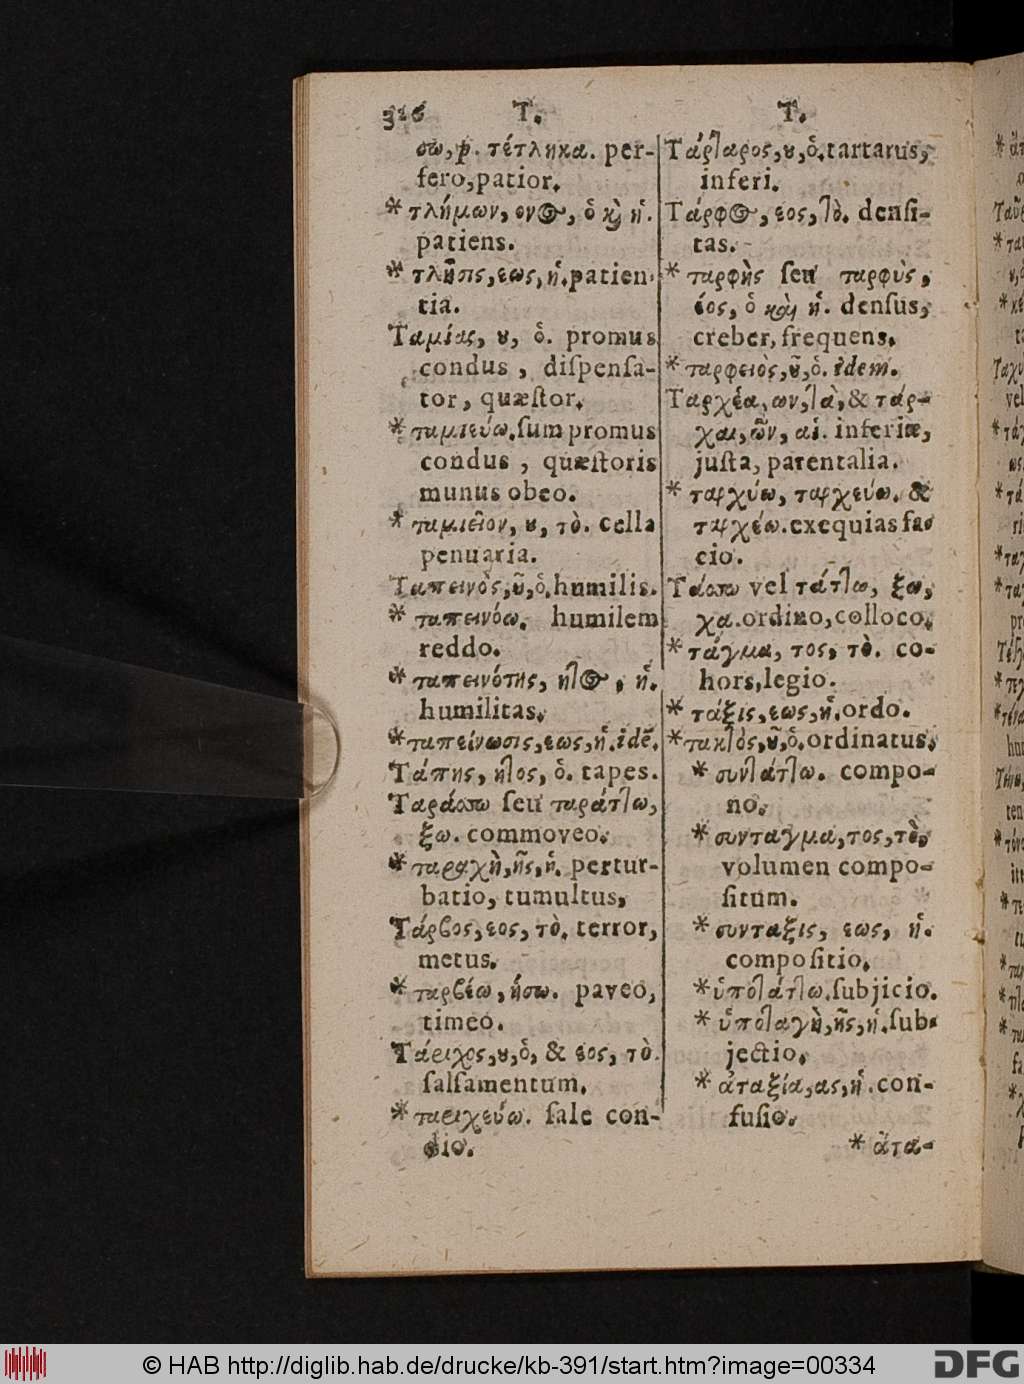 326 T. T.
σω, p. τέτληκα. per-
fero, patior.
* τλήμων, ονος, ὁ κỳ ἡ.
patiens.
* τλῆσις, εως, ἡ. patien-
tia.
Ταμίας, ȣ, ὁ. promus
condus, diſpenſa-
tor, quæſtor.
* ταμιεύω. ſum promus
condus, quæſtoris
munus obeo.
* ταμιεῖον, ȣ, τὸ. cella
penuaria.
Ταπεινὸς, ȣ͂, ὁ. humilis.
* ταπεινόω. humilem
reddo.
* ταπεινότης, ητος, ἡ.
humilitas.
* ταπείνωσις, εως, ἡ. idē.
Τάπης, ητος, ὁ. tapes.
Ταράσσω ſeu ταράττω,
ξω. commoveo.
* ταραχὴ, ῆς, ἡ. pertur-
batio, tumultus,
Τάρβος, εος, τὸ. terror,
metus.
* ταρβέω, ήσω. paveo,
timeo.
Τάριχος, ȣ, ὁ, & εος, τὸ.
ſalſamentum.
* ταριχεύω. ſale con-
dio.
Τάρταρος, ȣ, ὁ. tartarus,
inferi.
Τάρφος, εος, τὸ. denſi-
tas.
* ταρφὴς ſeu ταρφὺς,
έος, ὁ καὶ ἡ. denſus,
creber, frequens.
* ταρφειὸς, ȣ͂, ὁ. idem.
Ταρχέα, ων, τὰ, & τάρ-
χαι, ῶν, αἱ. inferiæ,
juſta, parentalia.
* ταρχύω, ταρχεύω. &
ταρχέω. exequias fa-
cio.
Τάσσω vel τάττω, ξω,
χα. ordino, colloco.
* τάγμα, τος, τὸ. co-
hors, legio.
* τάξις, εως, ἡ. ordo.
* τακτὸς, ȣ͂, ὁ. ordinatus.
* συντάττω. compo-
no.
* συνταγμα, τος, τὸ.
volumen compo-
ſitum.
* συνταξις, εως, ἡ.
compoſitio.
* ὑποτάττω. ſubjicio.
* ὑποταγὴ, ῆς, ἡ. ſub-
jectio.
* ἀταξία, ας, ἡ. con-
fuſio.
* ἀτα-
© HAB http://diglib.hab.de/drucke/kb-391/start.htm?image=00334
DFG